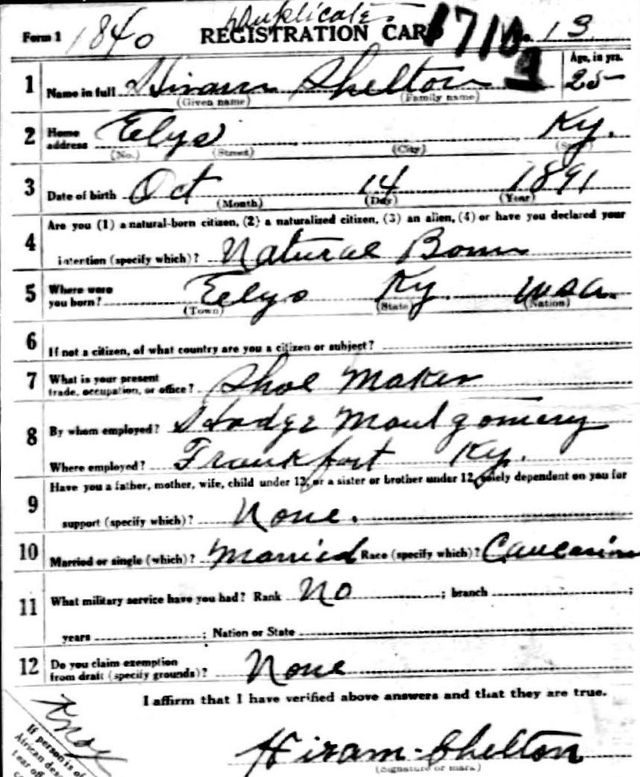 Duplicate
Form 1 1840 REGISTRATION CARD 1710 No. 13
1 Name in full Hiram Shelton Age, in yrs. 25
(Given name) (Family name)
2 Home address Elys Ky.
(No.) (Street) (City) (State)
3 Date of birth Oct 14 1891
(Month) (Day) (Year)
Are you (1) a natural-born citizen, (2) a naturalized citizen, (3) an alien, (4) or have you declared your
4 intention (specify which)? Natural Born
5 Where were you born? Elys Ky. USA.
(Town) (State) (Nation)
6 If not a citizen, of what country are you a citizen or subject?
7 What is your present trade, occupation, or office? Shoe Maker
8 By whom employed? Hodge Montgomery
Where employed? Frankfort Ky.
Have you a father, mother, wife, child under 12, or a sister or brother under 12, solely dependent on you for
9 support (specify which)? None.
10 Married or single (which)? Married Race (specify which)? Caucasian
11 What military service have you had? Rank No ; branch ;
years ; Nation or State
12 Do you claim exemption from draft (specify grounds)? None
I affirm that I have verified above answers and that they are true.
Knox
If person is of
African des
tear off
Hiram Shelton
(Signature or mark)